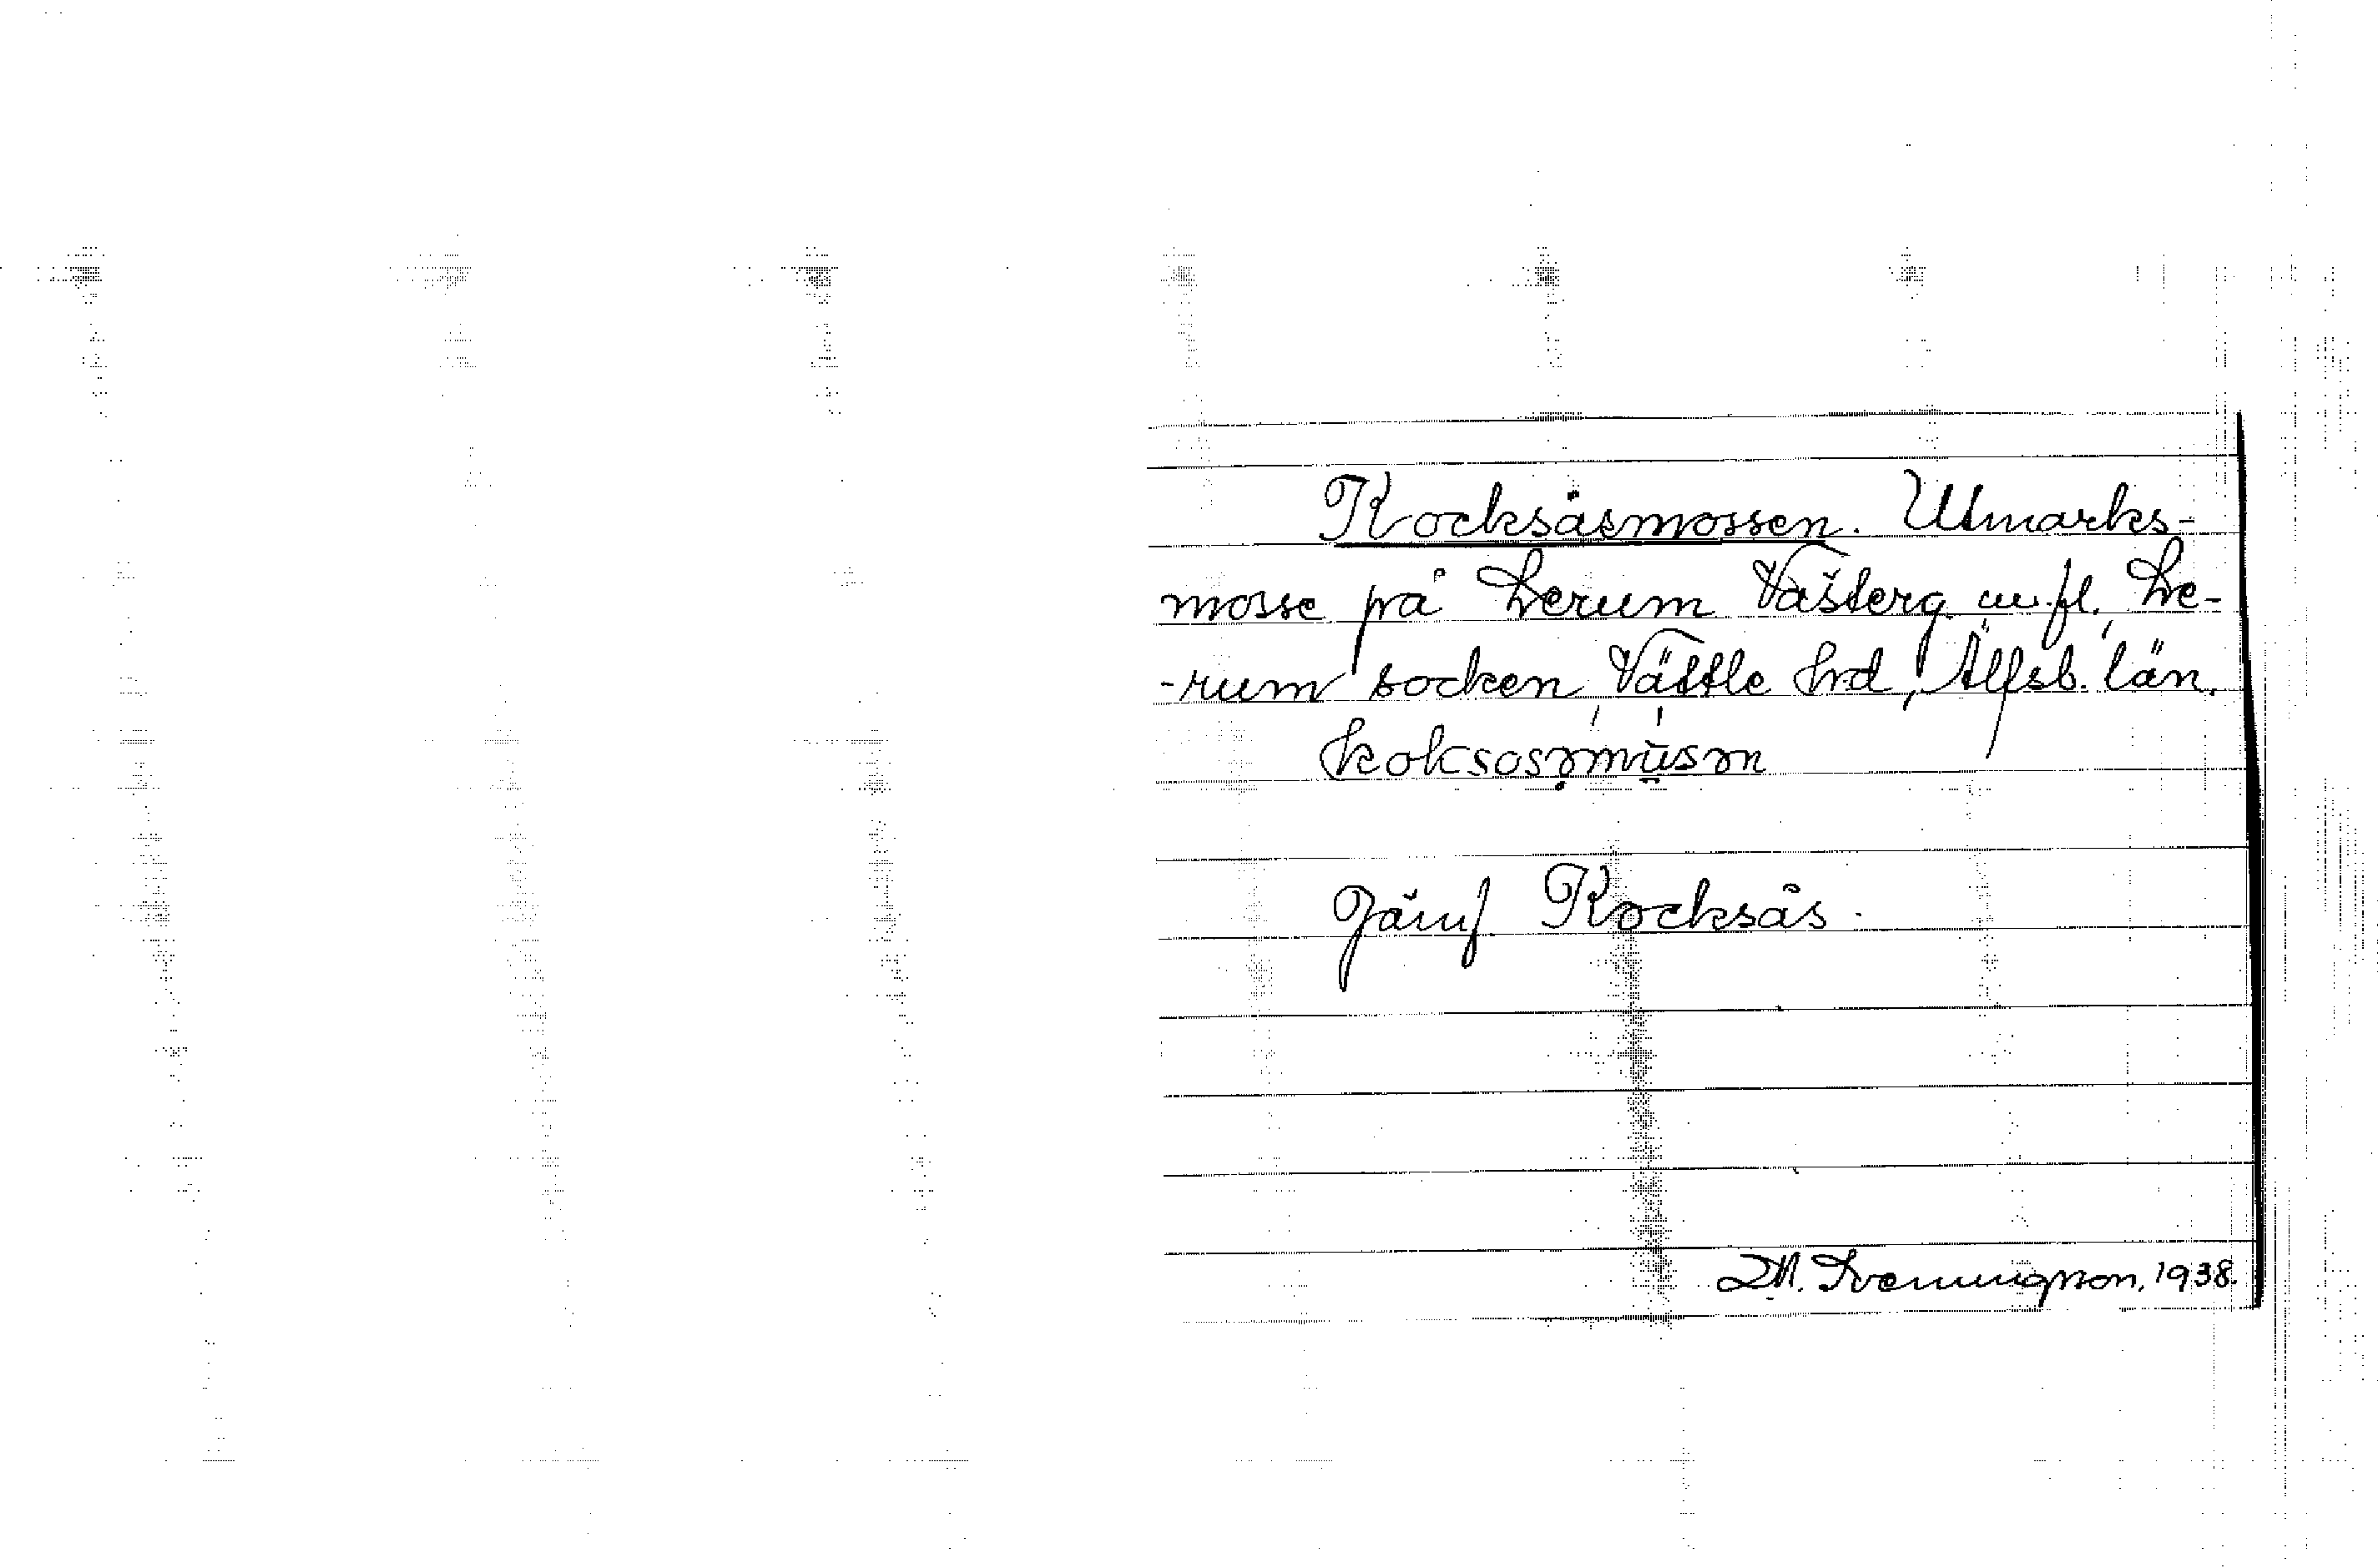 Kocksåsmossen. Utmarks-
mosse på Lerum Västerg. m.fl., Le-
-rum socken, Vättle hrd, Älfsb. län.
Jämf. Kocksås.
M. Svenningson, 1938.